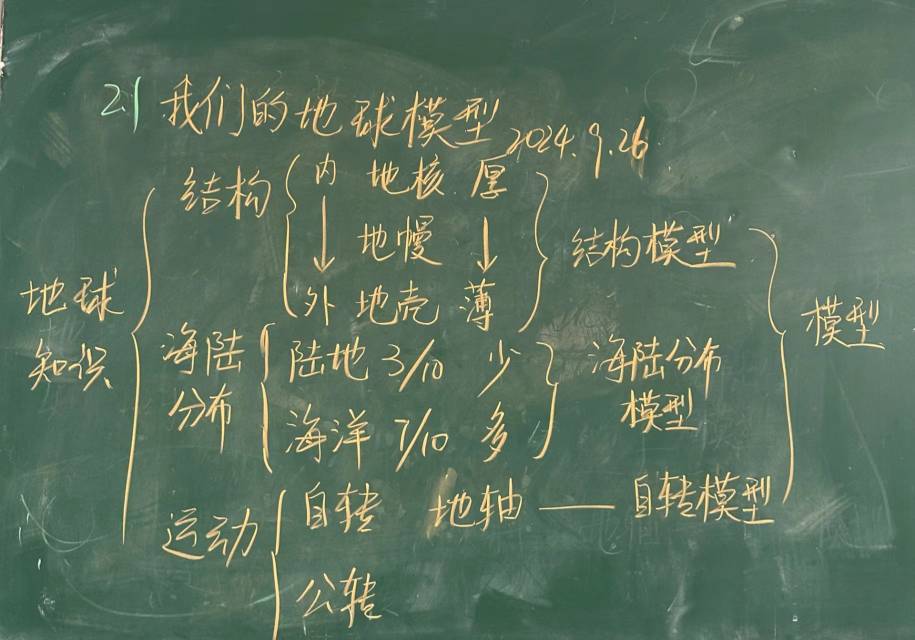 2.1 我们的地球模型
2024.9.26
地球
知识
结构
内 地核 厚
地幔
外 地壳 薄
结构模型
海陆
分布
陆地 3/10 少
海洋 7/10 多
海陆分布
模型
运动
自转 地轴 —— 自转模型
公转
模型